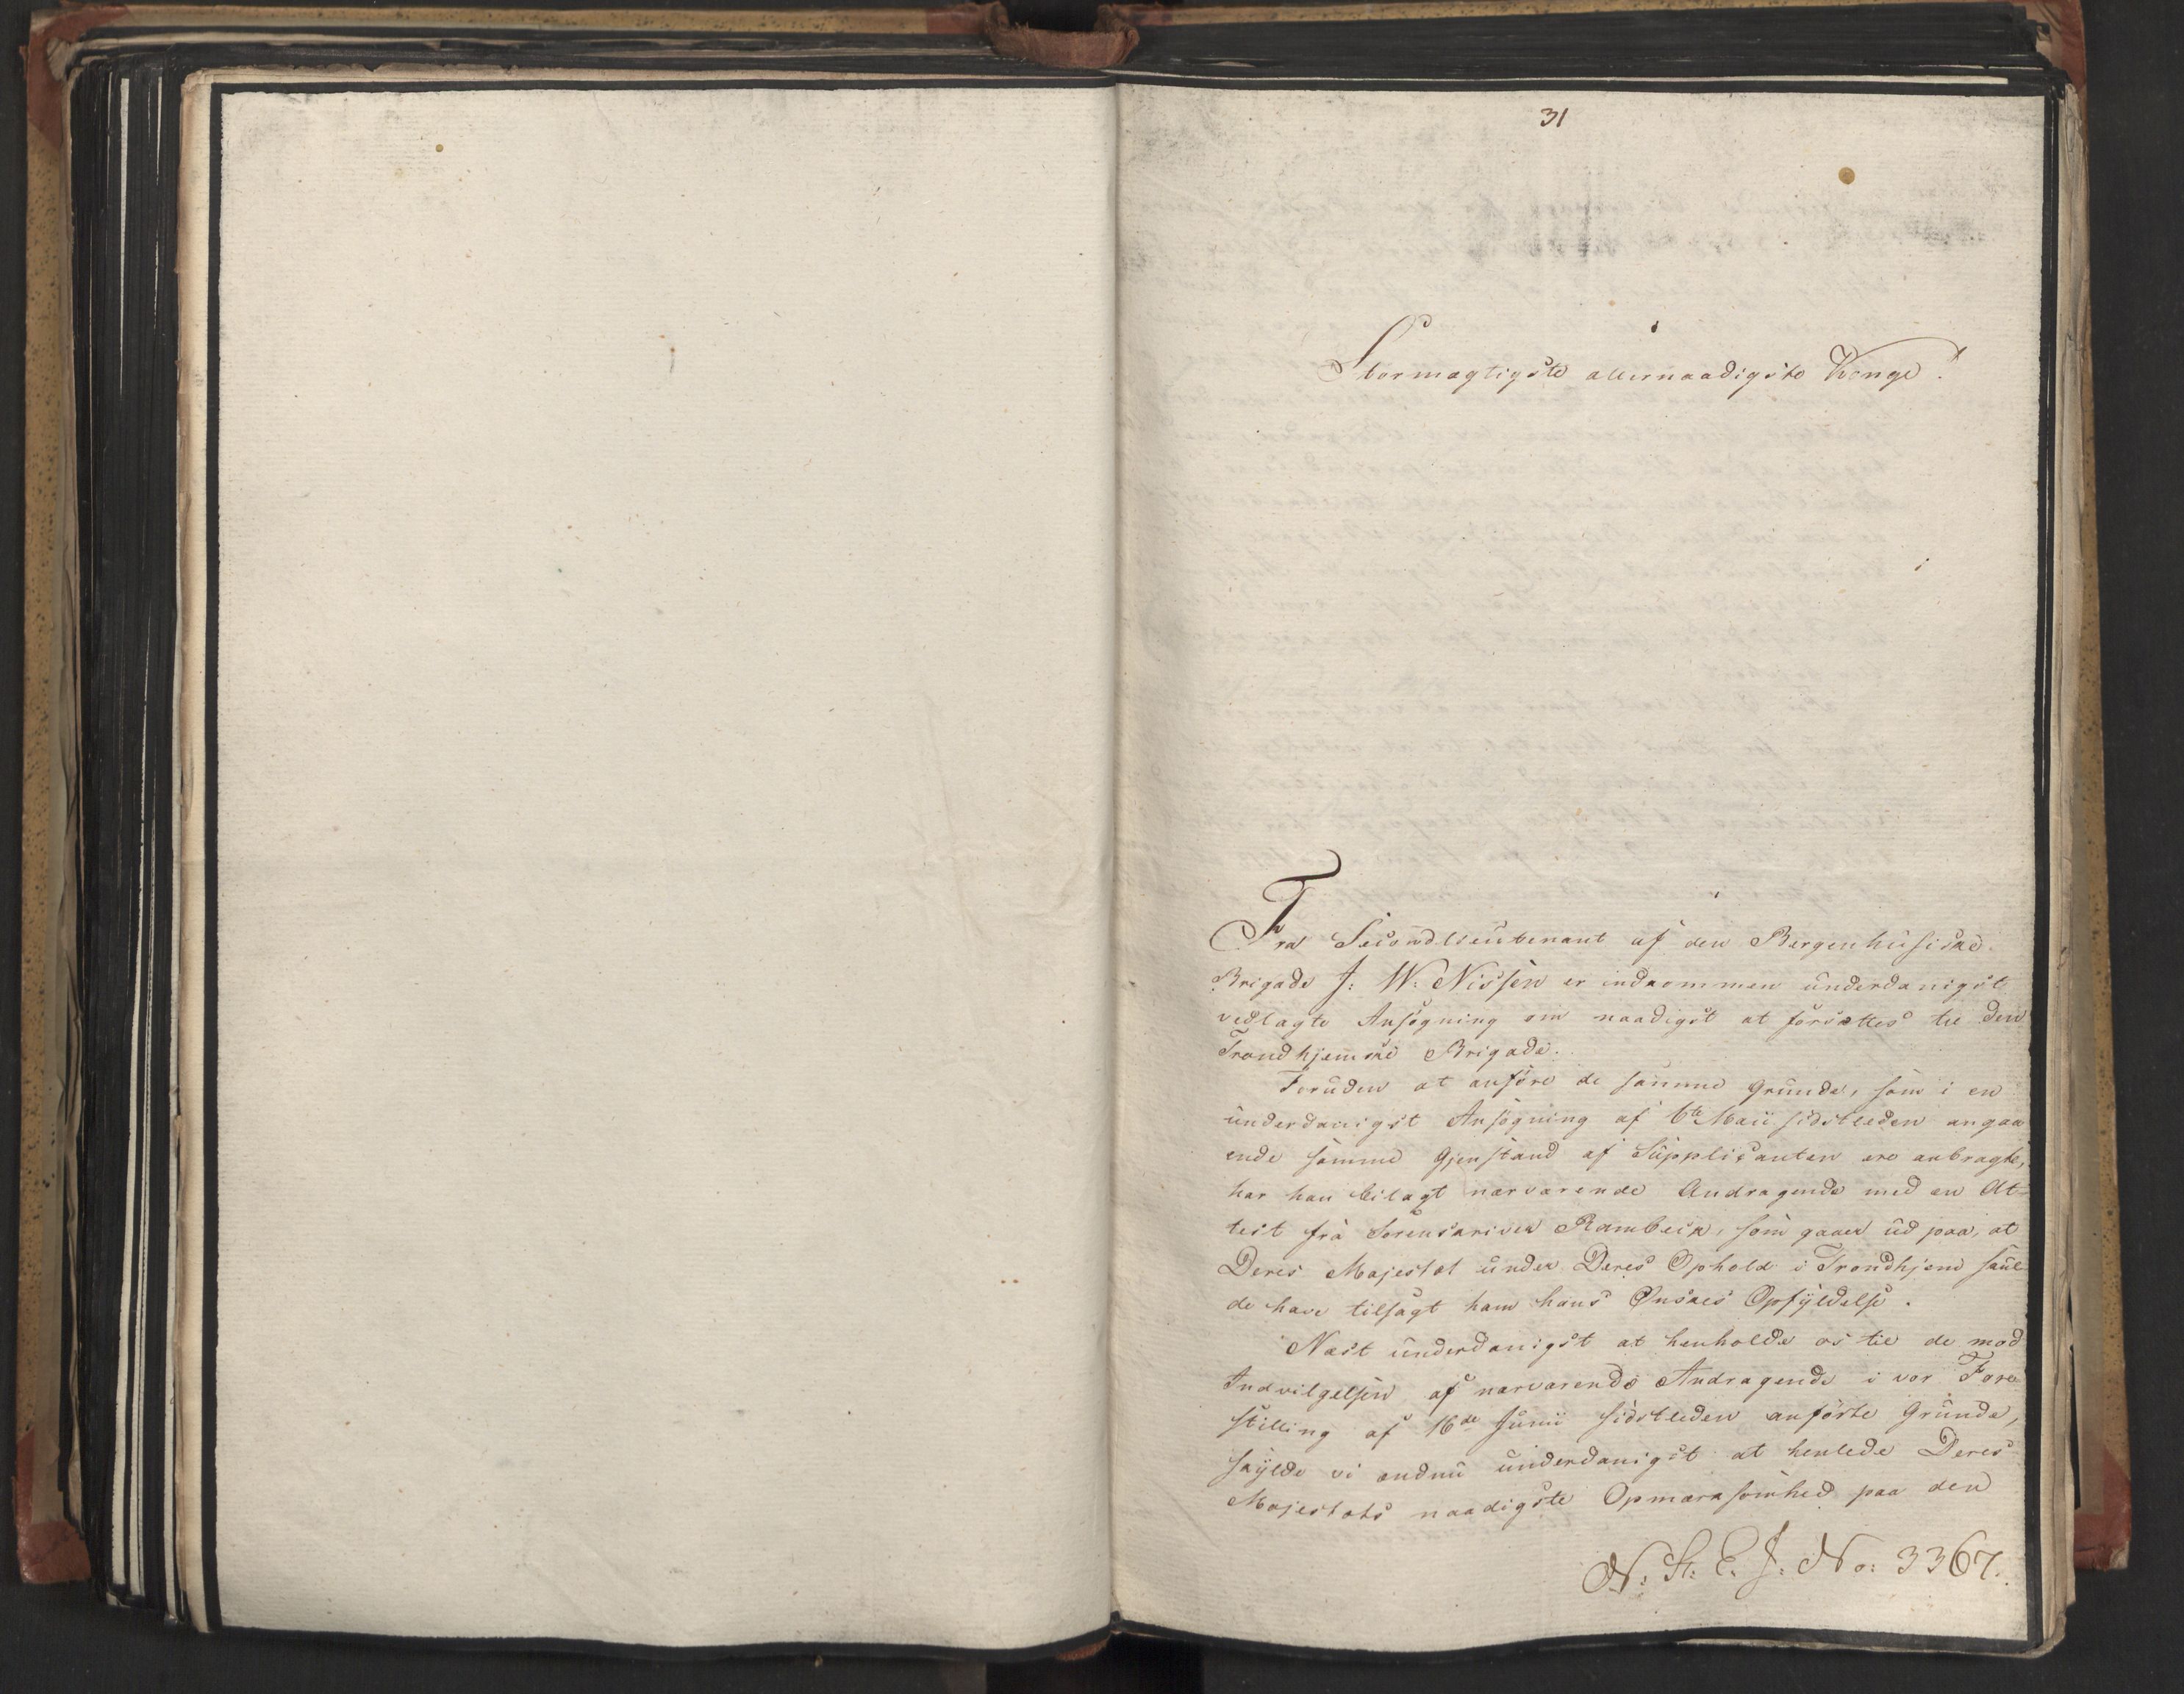 31
Stormægtigste allernaadigste Konge!
Fra Secondlieutenant af den Bergenhusiske
Brigade J: W: Nissen er indkommen underdanigst
vedlagte Ansøgning om naadigst at forsættes til den
Trondhjemske Brigade.
Foruden at anføre de samme Grunde, som i en
underdanigst Ansøgning af 6te Maii sidstleden angaa
ende samme Gjenstand af Supplicanten ere anbragte,
har han bilagt nærværende Andragende med en At=
test fra Sorenskriver Rambech, som gaaer ud paa, at
Deres Majestæt under Deres Ophold i Trondhjem skul
de have tilsagt ham hans Ønskes Opfyldelse.
Næst underdanigst at henholde os til de mod
Indvilgelsen af nærværende Andragende i vor Fore
stilling af 16de Junii sidstleden anførte Grunde,
skylde vi endnu underdanigst at henlede Deres
Majestæts naadigste Opmærksomhed paa den
N: St: E. J: No: 3367.